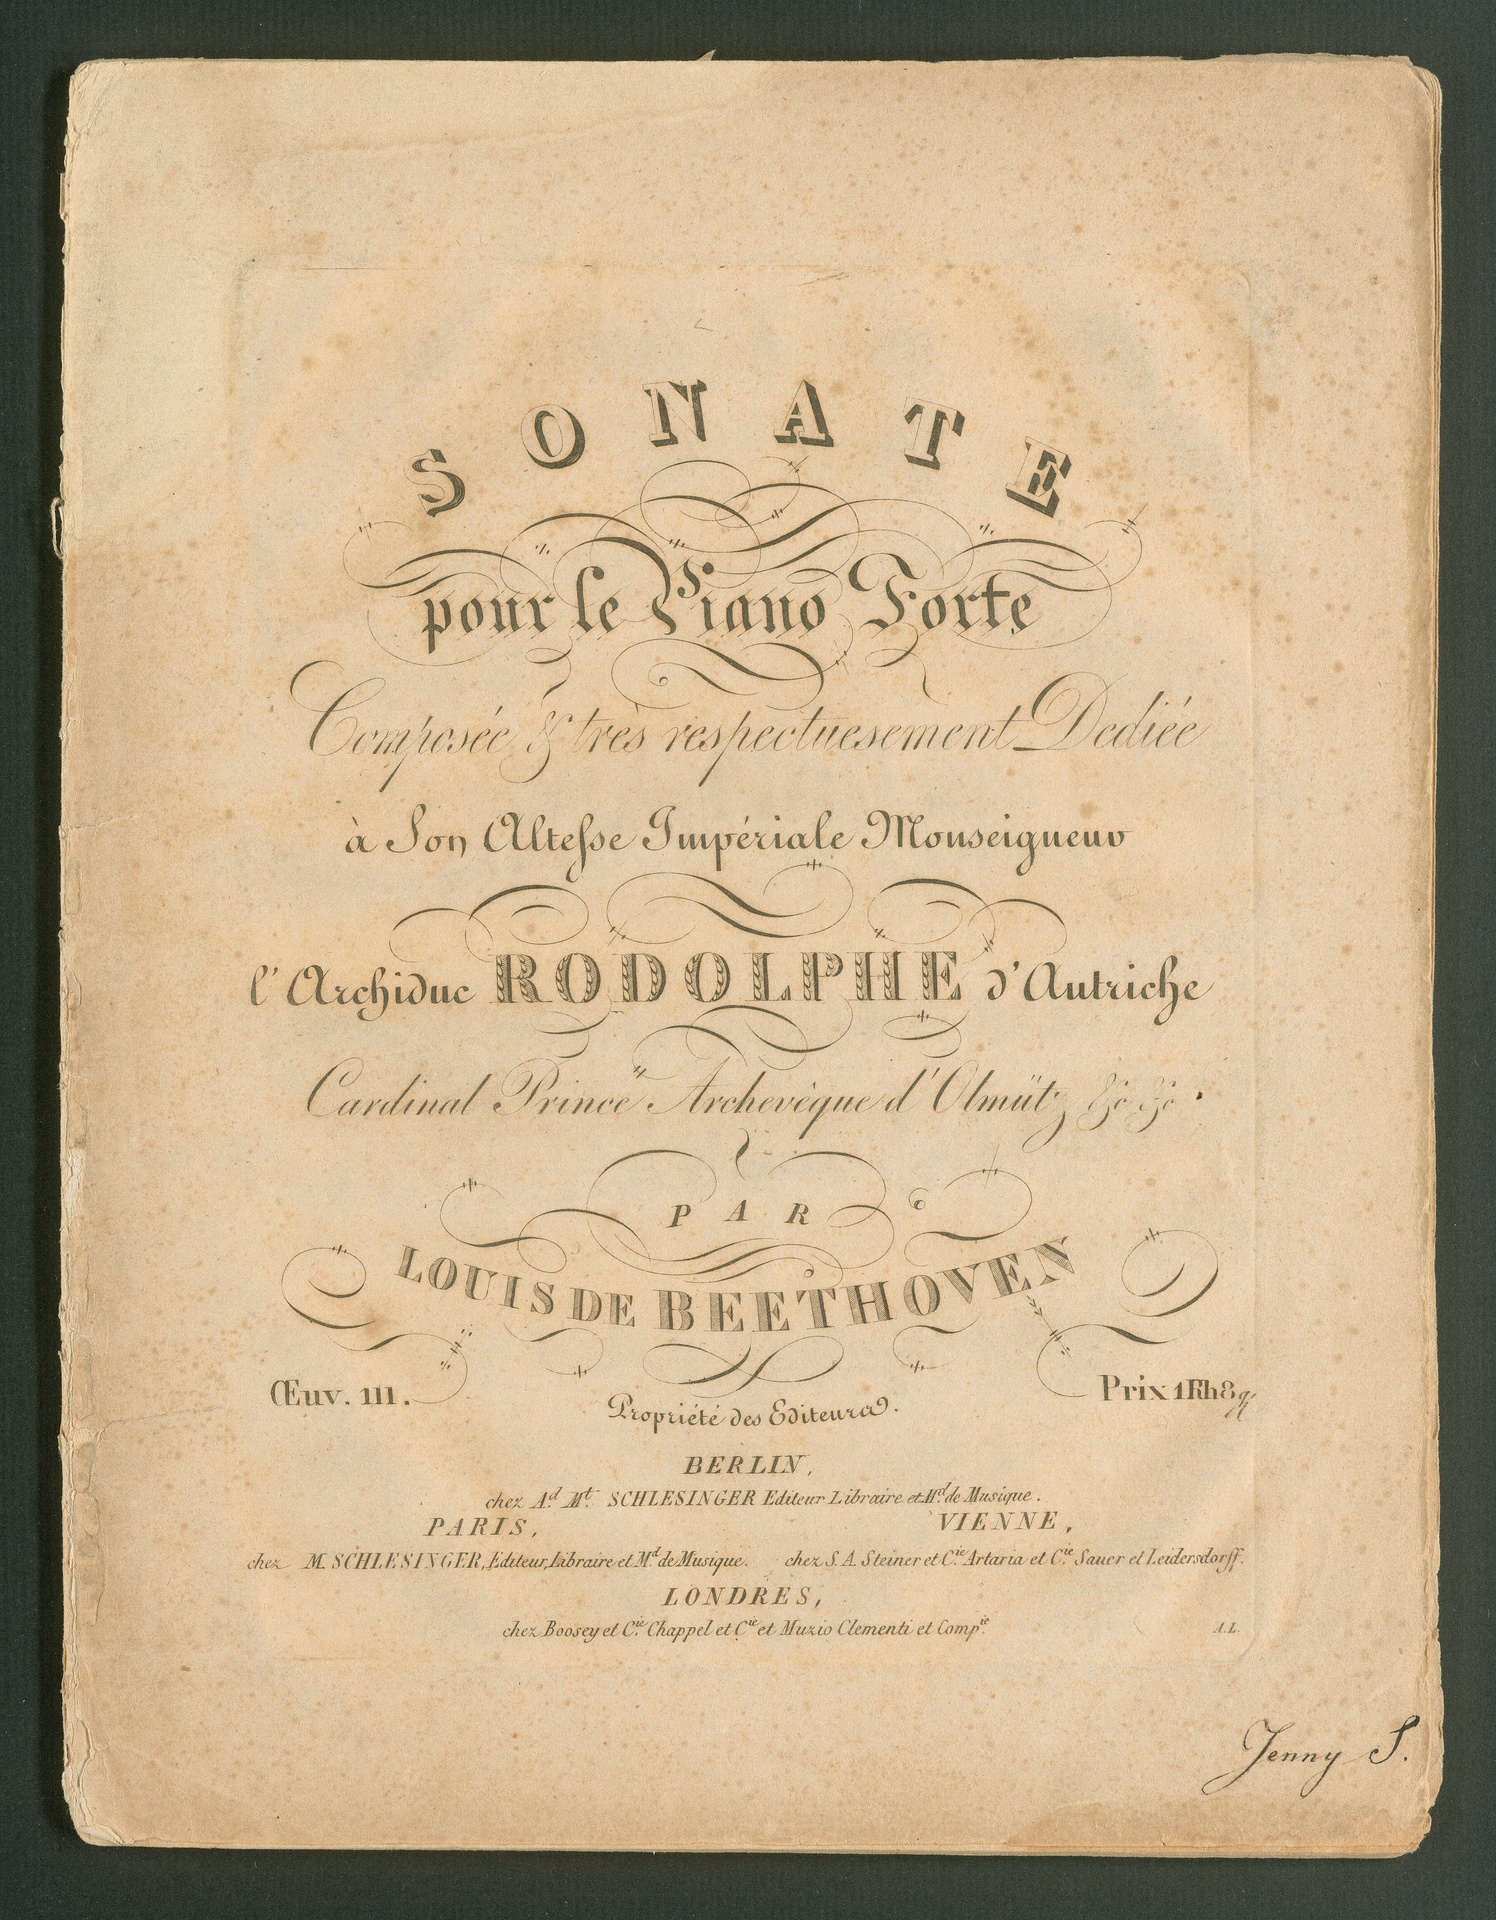 SONATE
pour le Piano Forte
Composée & très respectuesement Dediée
à Son Altesse Impériale Monseigneur
l'Archiduc RODOLPHE d'Autriche
Cardinal Prince Archevêque d'Olmütz &c &c.
PAR
LOUIS DE BEETHOVEN
Œuv. 111. Prix 1 Rth 8 g
Propriété des Editeurs.
BERLIN,
chez Ad. Mt. SCHLESINGER Editeur Libraire et Md. de Musique.
PARIS, VIENNE,
chez M. SCHLESINGER, Editeur, Libraire et Md. de Musique. chez S. A. Steiner et Cie. Artaria et Cie. Sauer et Leidersdorff.
LONDRES,
chez Boosey et Cie. Chappel et Cie. et Muzio Clementi et Compie.
A.L.
Jenny S.